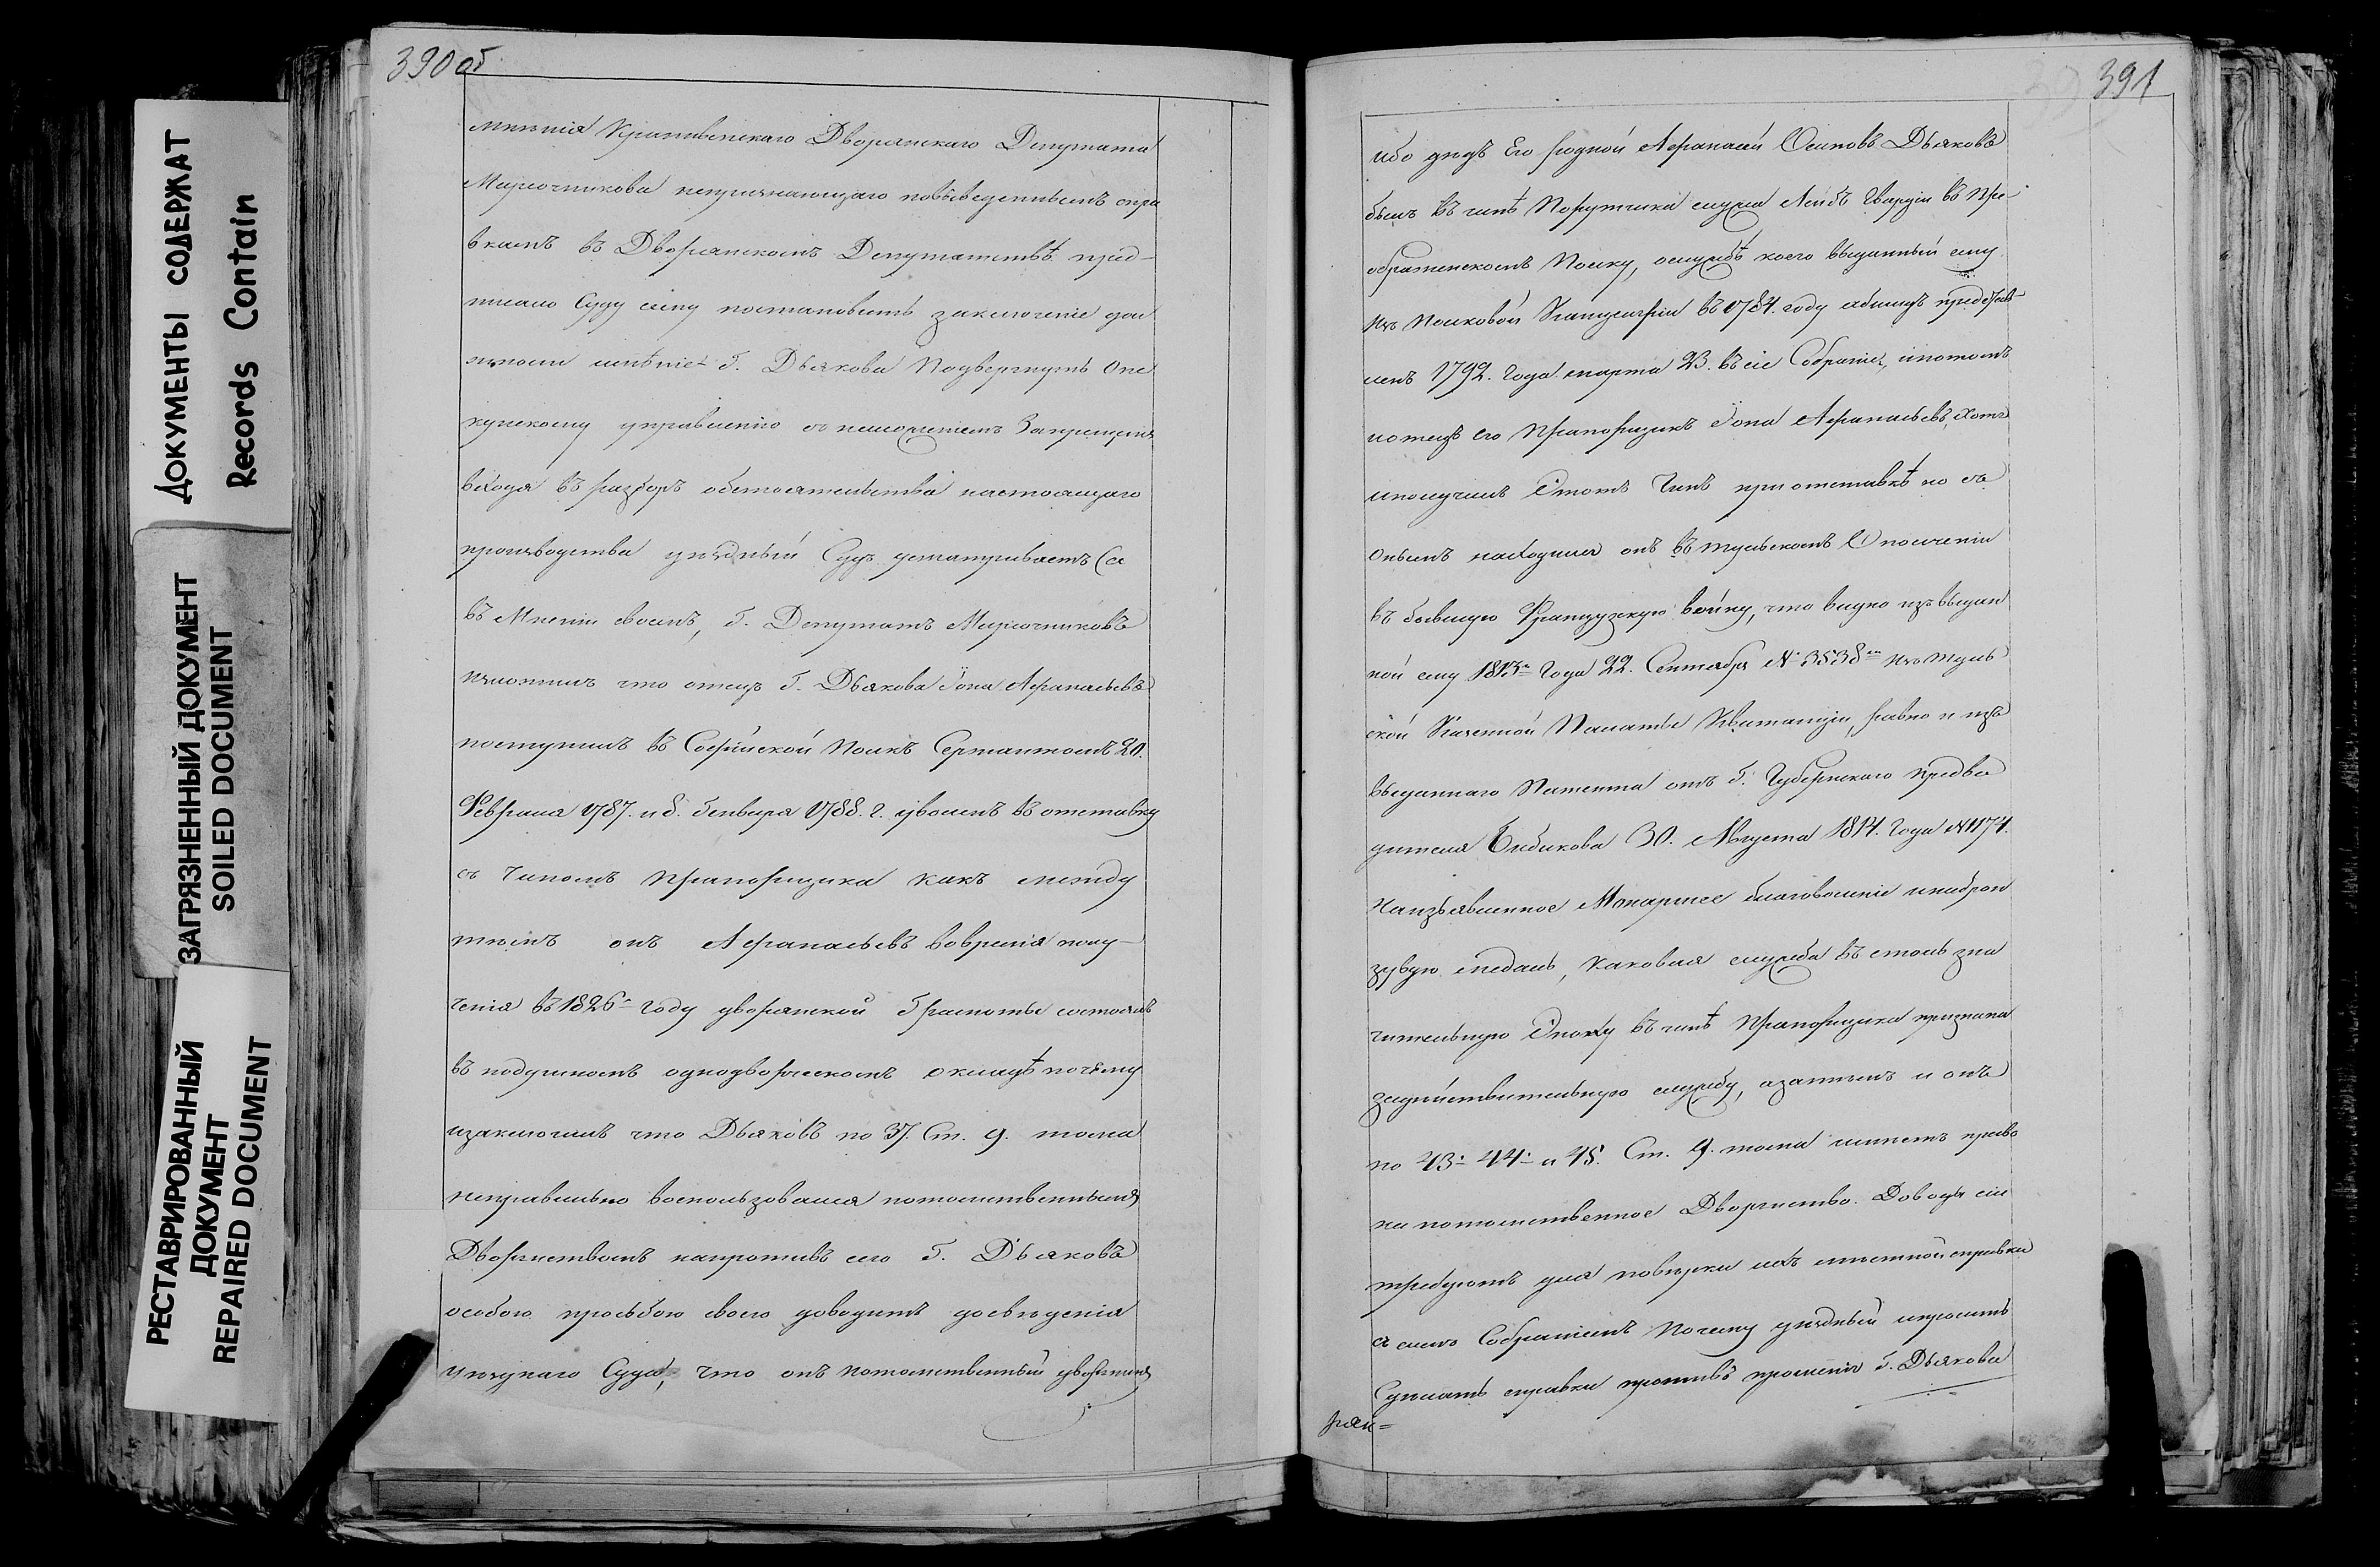 390 об
мнѣнія Крапивенскаго Дворянскаго Депутата
Мирочникова непризнающаго повѣведеннымъ спра
вкамъ въ Дворянскомъ Депутатствѣ пред-
писало Суду сему постановить заключеніе дол
жноли имѣніе Г. Дьякова Подвергнуть Опе
кунскому управленію съ наложеніемъ Запрещенія
входя въ разборъ обстоятельства настоящаго
производства уѣздный Судъ усматриваетъ (а
въ Мнѣніи своемъ, Г. Депутатъ Мирочниковъ
изложилъ что отецъ Г. Дьякова Іона Афанасьевъ
поступилъ въ Софійской Полкъ Сержантомъ 20.
Февраля 1787. и 8. Генваря 1788. г. уволенъ въ отставку
съ Чиномъ Прапорщика какъ между
тѣмъ онъ Афанасьевъ вовремя полу-
ченія въ 1826-^го году дворянской Грамоты состоялъ
въ подушномъ однодворческомъ окладѣ почему
изаключилъ что Дьяковъ по 37. Ст. 9. тома
неправильно воспользовался потомственнымъ
Дворянствомъ напротивъ сего Г. Дьяковъ
особою просьбою своею доводитъ до свѣденія
уѣзднаго Суда, что онъ потомственный дворянинъ
391
ибо дѣдъ Его родной Афанасей Осиповъ Дьяковъ
былъ въ чинѣ Порутчика служа Лейбъ Гвардіи въ Пре-
ображенскомъ Полку, ослужбѣ коего выданный ему
изъ Полковой Канцеляріи въ 1784. году абшидъ представ-
ленъ 1792. Года марта 23. въ сіе Собраніе, ипотомъ
иотецъ его Прапорщикъ Іона Афанасьевъ, хотя
иполучилъ Этотъ Чинъ приотставкѣ но съ
Онымъ находился онъ въ тульскомъ Ополченіи
въ бывшую Французскую войну, что видно изъ выдан
ной ему 1813^го Года 22. Сентября № 3538^мъ изъ Туль
ской Казенной Палаты Квитанціи, равно и изъ
выданнаго Патента отъ Г. Губернскаго Предво
дителя Бибикова 30. Августа 1814. Года № 1174.
Наизъявленное Монаршее благоволеніе инаброн
зувую медаль, каковая служба въ столь зна
чительную Эпоху въ чинѣ Прапорщика признана
задѣйствительную службу, азатѣмъ и онъ
по 43^й 44^й и 45. Ст. 9. тома имѣетъ право
на потомственное Дворянство. Доводы сіи
требуютъ для повѣрки ихъ имѣтной справки
съ симъ Собраніемъ Почему уѣздный ипроситъ
Сдѣлать справки противъ прошенія Г. Дьякова
рѣн=
ДОКУМЕНТЫ СОДЕРЖАТ
Records Contain
ЗАГРЯЗНЕННЫЙ ДОКУМЕНТ
SOILED DOCUMENT
РЕСТАВРИРОВАННЫЙ
ДОКУМЕНТ
REPAIRED DOCUMENT